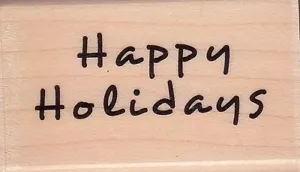 Happy
Holidays